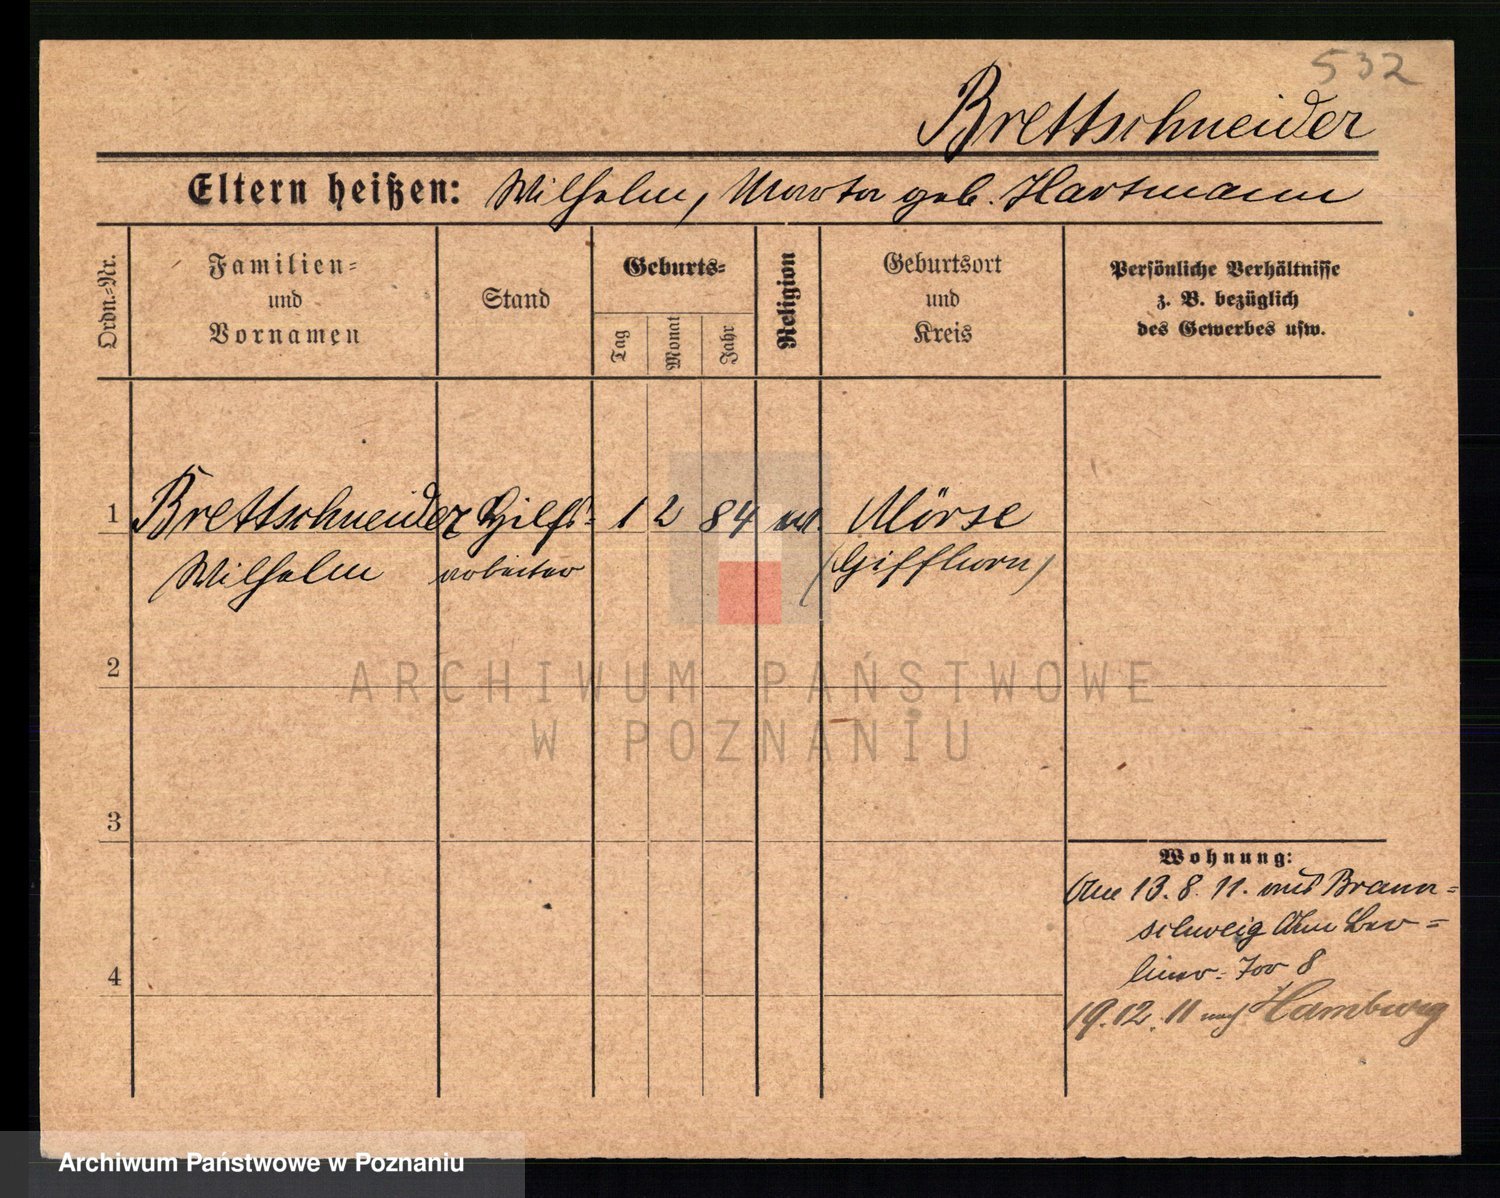 532
Brettschneider
Eltern heißen: Wilhelm, Marta geb. Hartmann
Ordn.=Nr.
Familien=
und
Vornamen
Stand
Geburts=
Tag
Monat
Jahr
Religion
Geburtsort
und
Kreis
Persönliche Verhältnisse
z. B. bezüglich
des Gewerbes usw.
1 Brettschneider Hilfs= 1 2 84 Mörse
Wilhelm arbeiter (Giffhorn)
2
ARCHIWUM PAŃSTWOWE
W POZNANIU
3
Wohnung:
13. 8. 11. aus Braun=
schweig Am Ber=
liner=Tor 8
4
19.12.11 nach Hamburg
Archiwum Państwowe w Poznaniu